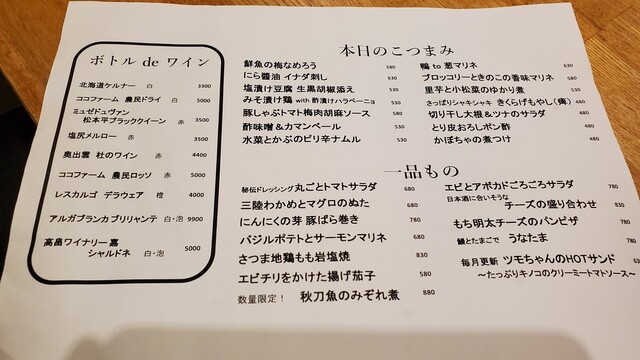 ボトル de ワイン
北海道ケルナー 白 3300
ココファーム 農民ドライ 白 5000
ミュゼドュヴァン
松本平ブラッククイーン 赤 3500
塩尻メルロー 赤 3500
奥出雲 杜のワイン 赤 4400
ココファーム 農民ロッソ 赤 5000
レスカルゴ デラウェア 橙 4000
アルガブランカブリリャンテ 白・泡 9900
高畠ワイナリー嘉
シャルドネ 白・泡 5000
本日のこつまみ
鮮魚の梅なめろう 580
にら醬油 イナダ刺し 630
塩漬け豆腐 生黒胡椒添え 530
みそ漬け鶏 with 酢漬けハラペーニョ 530
豚しゃぶトマト梅肉胡麻ソース 580
酢味噌&カマンベール 530
水菜とかぶのピリ辛ナムル 530
鴨 to 葱マリネ 630
ブロッコリーときのこの香味マリネ 580
里芋と小松菜のゆかり煮 530
さっぱりシャキシャキ きくらげもやし(酢) 480
切り干し大根&ツナのサラダ 480
とり皮おろしポン酢 480
かぼちゃの煮つけ 480
一品もの
秘伝ドレッシング 丸ごとトマトサラダ 680
三陸わかめとマグロのぬた 680
にんにくの芽 豚ばら巻き 780
バジルポテトとサーモンマリネ 680
さつま地鶏もも岩塩焼 830
エビチリをかけた揚げ茄子 580
数量限定! 秋刀魚のみぞれ煮 880
エビとアボカドごろごろサラダ 780
日本酒に合いそうな
チーズの盛り合わせ 830
もち明太チーズのパンピザ 780
鰻とたまごで うなたま 780
毎月更新 ツモちゃんのHOTサンド
〜たっぷりキノコのクリーミートマトソース〜